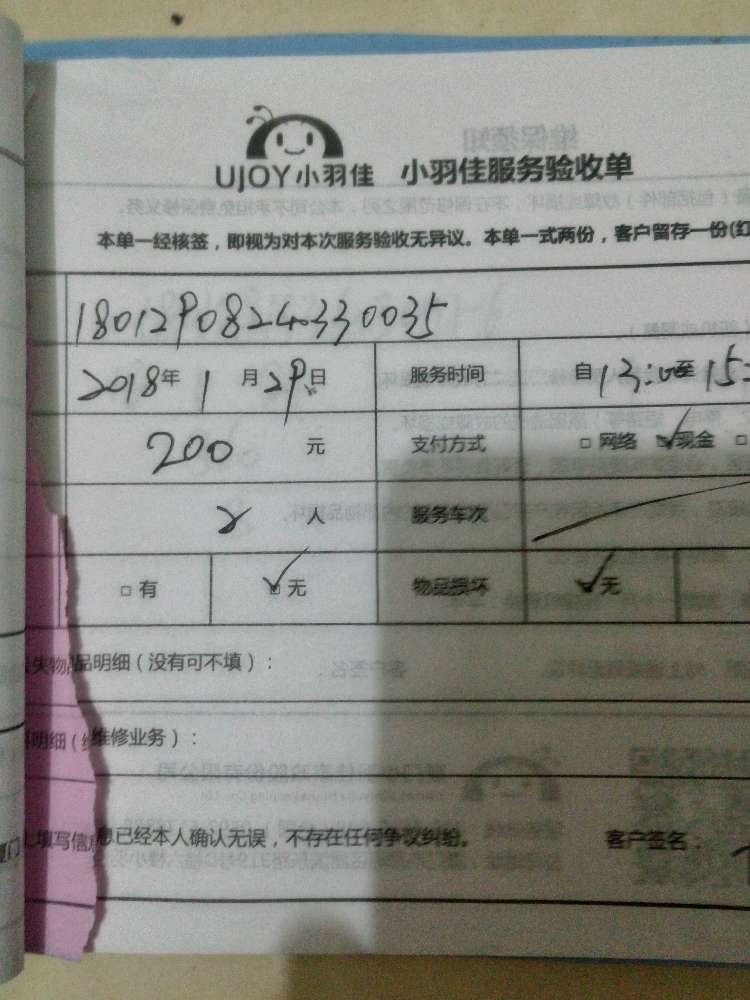 UJOY小羽佳 小羽佳服务验收单
本单一经核签，即视为对本次服务验收无异议。本单一式两份，客户留存一份(红
1801290824330035
2018年 1 月 29日 服务时间 自 13:00至 15:
200 元 支付方式 □ 网络 ☑ 现金 □
2 人 服务车次
□ 有 ☑ 无 物品损坏 ☑ 无
失物品明细（没有可不填）：
明细（维修业务）：
填写信息已经本人确认无误，不存在任何争议纠纷。 客户签名：